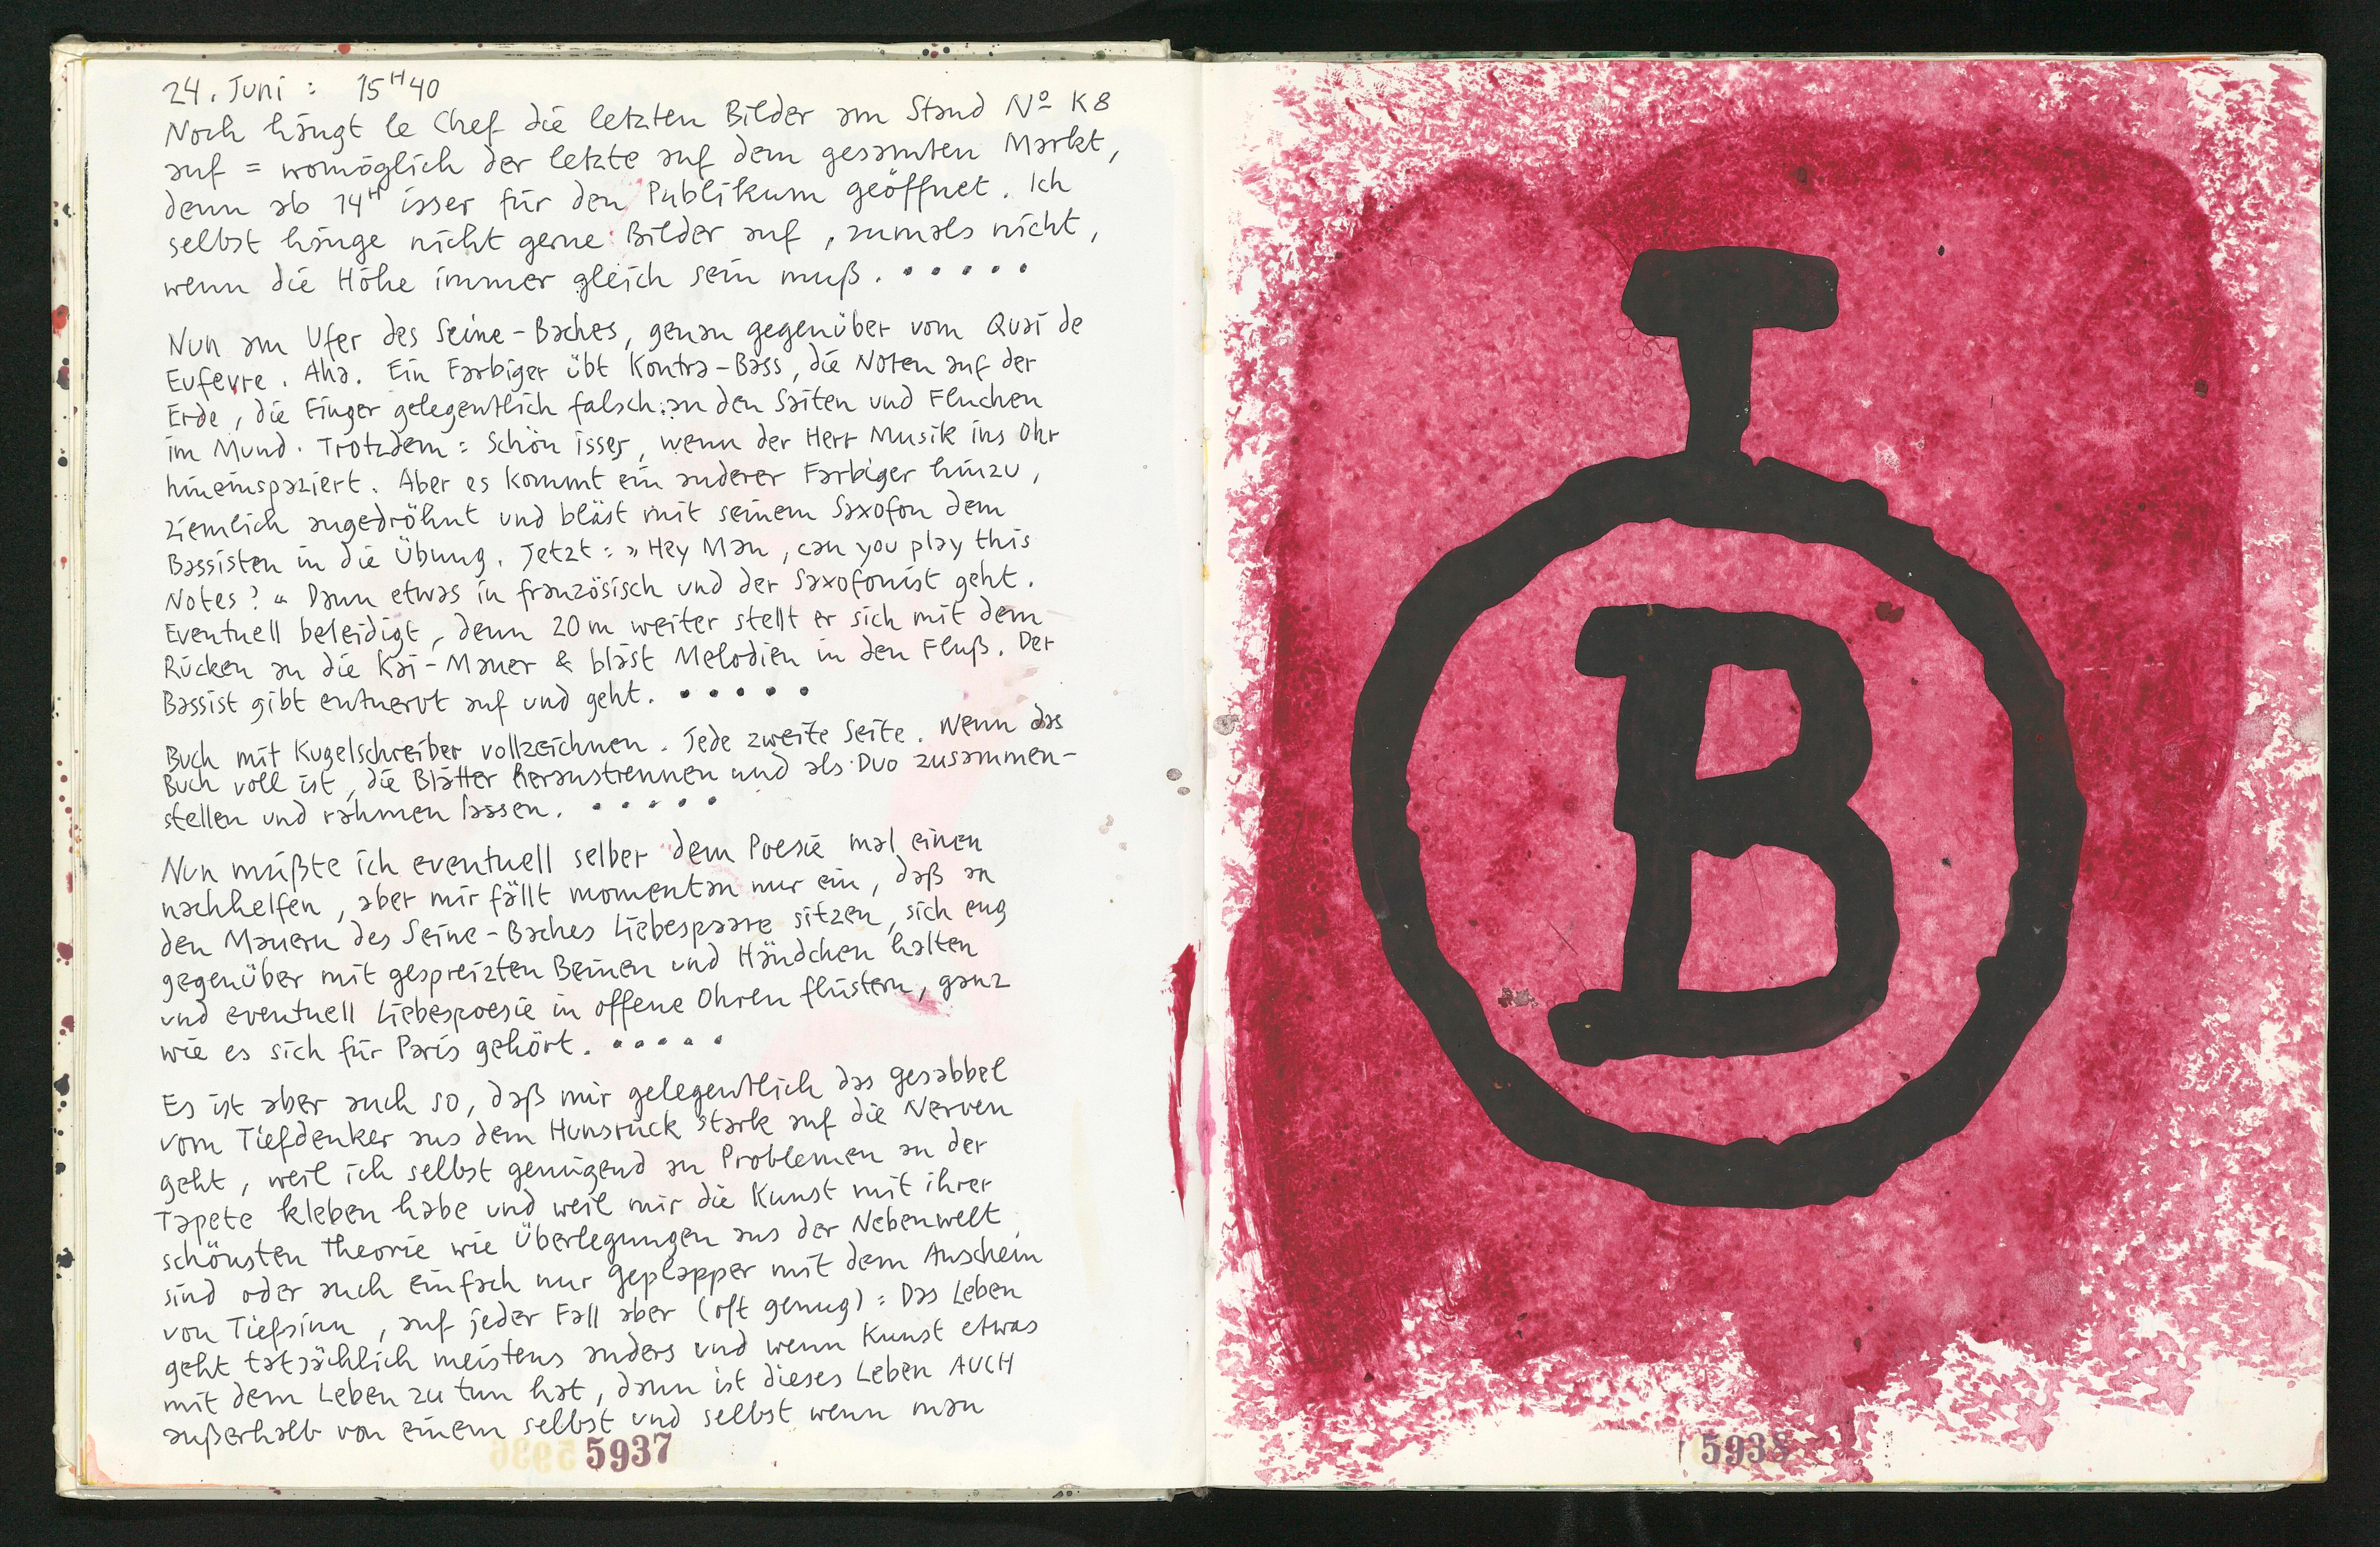 24. Juni : 15H40
Noch hängt le Chef die letzten Bilder am Stand Nº K8
auf = womöglich der letzte auf dem gesamten Markt,
denn ab 14H isser für den Publikum geöffnet. Ich
selbst hänge nicht gerne Bilder auf, zumals nicht,
wenn die Höhe immer gleich sein muß. • • • • •
Nun am Ufer des Seine-Baches, genau gegenüber vom Quai de
Eufevre. Aha. Ein Farbiger übt Kontra-Bass, die Noten auf der
Erde, die Finger gelegentlich falsch an den Saiten und Fluchen
im Mund. Trotzdem = Schön isser, wenn der Herr Musik ins Ohr
hineinspaziert. Aber es kommt ein anderer Farbiger hinzu,
ziemlich angedröhnt und bläst mit seinem Saxofon dem
Bassisten in die Übung. Jetzt = »Hey Man, can you play this
Notes?« Dann etwas in französisch und der Saxofonist geht.
Eventuell beleidigt, denn 20m weiter stellt er sich mit dem
Rücken an die Kai-Mauer & bläst Melodien in den Fluß. Der
Bassist gibt entnervt auf und geht. • • • • •
Buch mit Kugelschreiber vollzeichnen. Jede zweite Seite. Wenn das
Buch voll ist, die Blätter heraustrennen und als Duo zusammen-
stellen und rahmen lassen. • • • • •
Nun müßte ich eventuell selber dem Poesie mal einen
nachhelfen, aber mir fällt momentan nur ein, daß an
den Mauern des Seine-Baches Liebespaare sitzen, sich eng
gegenüber mit gespreizten Beinen und Händchen halten
und eventuell Liebespoesie in offene Ohren flüstern, ganz
wie es sich für Paris gehört. • • • • •
Es ist aber auch so, daß mir gelegentlich das Gesabbel
vom Tiefdenker aus dem Hunsrück stark auf die Nerven
geht, weil ich selbst genügend an Problemen an der
Tapete kleben habe und weil mir die Kunst mit ihrer
schönsten Theorie wie Überlegungen aus der Nebenwelt
sind oder auch einfach nur Geplapper mit dem Anschein
von Tiefsinn, auf jeder Fall aber (oft genug) = Das Leben
geht tatsächlich meistens anders und wenn Kunst etwas
mit dem Leben zu tun hat, dann ist dieses Leben AUCH
außerhalb von einem selbst und selbst wenn man
5937
B
5938